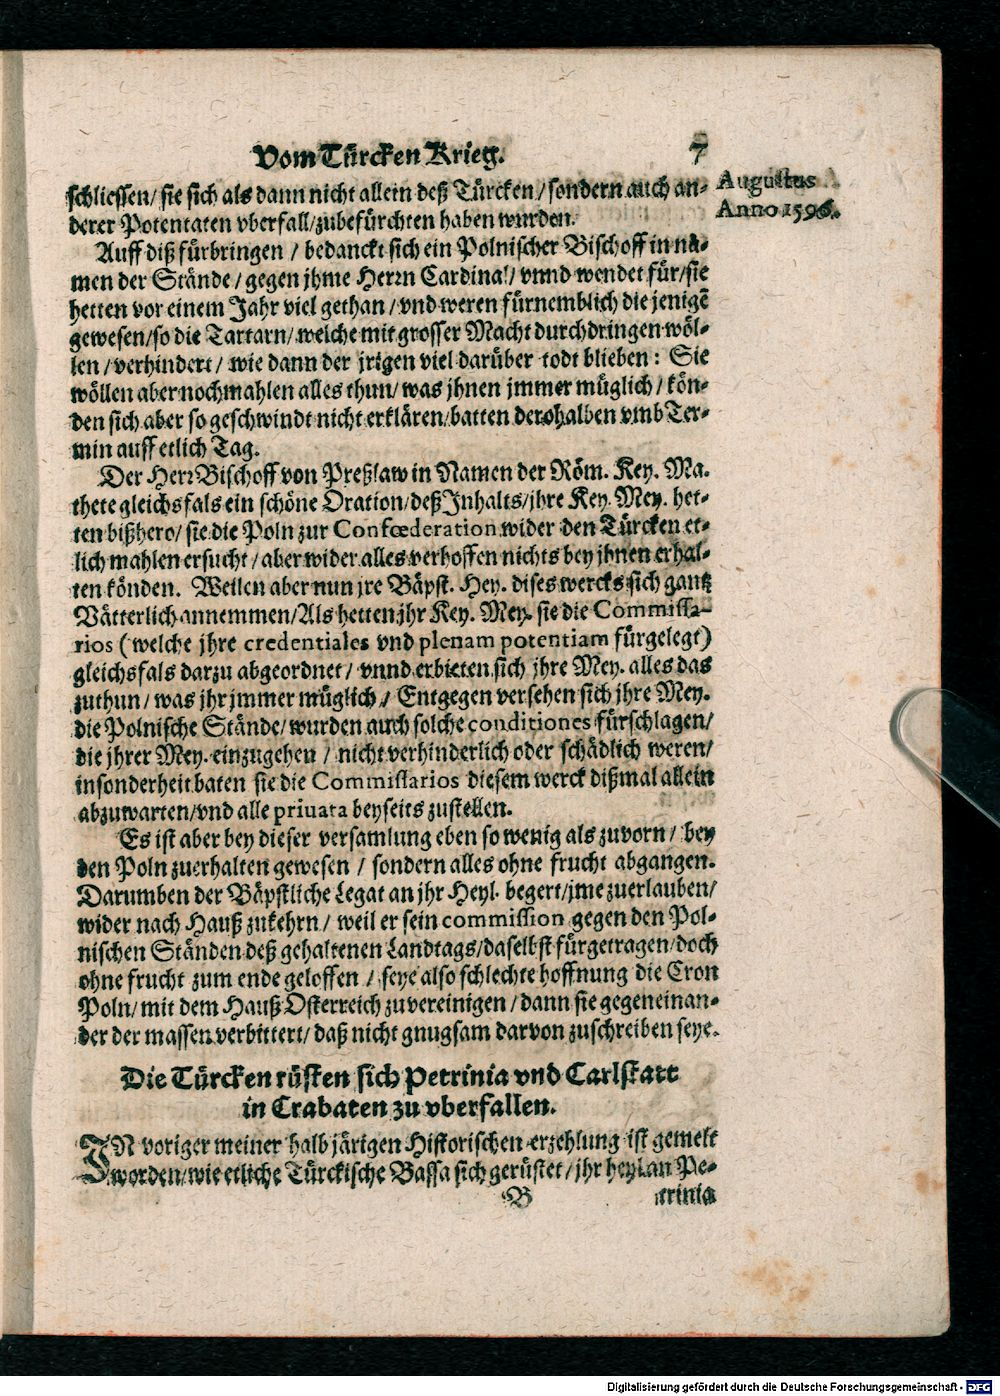 Vom Türcken Krieg. 7
Augustus
Anno 1596.
schliessen/ sie sich als dann nicht allein deß Türcken/ sondern auch an-
derer Potentaten vberfall/ zubefürchten haben wurden.
Auff diß fürbringen / bedanckt sich ein Polnischer Bischoff in na-
men der Stände/ gegen jhme Herrn Cardinal/ vnnd wendet für/ sie
hetten vor einem Jahr viel gethan/ vnd weren fürnemblich die jenigē
gewesen/ so die Tartarn/ welche mit grosser Macht durchdringen wöl-
len / verhindert/ wie dann der jrigen viel darüber todt blieben: Sie
wöllen aber nochmahlen alles thun/ was jhnen jmmer müglich/ kön-
den sich aber so geschwindt nicht erklären/ batten derohalben vmb Ter-
min auff etlich Tag.
Der Herr Bischoff von Preßlaw in Namen der Röm. Key. Ma.
thete gleichsfals ein schöne Oration/ deß Inhalts/ jhre Key. Mey. het-
ten bißhero/ sie die Poln zur Confœderation wider den Türcken et-
lich mahlen ersucht/ aber wider alles verhoffen nichts bey jhnen erhal-
ten könden. Weilen aber nun jre Bäpst. Hey. dises wercks sich gantz
Vätterlich annemmen/ Als hetten jhr Key. Mey. sie die Commissa-
rios (welche jhre credentiales vnd plenam potentiam fürgelegt)
gleichsfals darzu abgeordnet/ vnnd erbieten sich jhre Mey. alles das
zuthun/ was jhr jmmer müglich/ Entgegen versehen sich jhre Mey.
die Polnische Stände/ wurden auch solche conditiones fürschlagen/
die jhrer Mey. einzugehen / nicht verhinderlich oder schädlich weren/
insonderheit baten sie die Commissarios diesem werck dißmal allein
abzuwarten/ vnd alle priuata beyseits zustellen.
Es ist aber bey dieser versamlung eben so wenig als zuvorn/ bey
den Poln zuerhalten gewesen / sondern alles ohne frucht abgangen.
Darumben der Bäpstliche Legat an jhr Heyl. begert/ jme zuerlauben/
wider nach Hauß zukehrn/ weil er sein commission gegen den Pol-
nischen Ständen deß gehaltenen Landtags/ daselbst fürgetragen/ doch
ohne frucht zum ende geloffen / seye also schlechte hoffnung die Cron
Poln/ mit dem Hauß Osterreich zuvereinigen/ dann sie gegeneinan-
der der massen verbittert/ daß nicht gnugsam darvon zuschreiben seye.
Die Türcken rüsten sich Petrinia vnd Carlstatt
in Crabaten zu vberfallen.
IN voriger meiner halb järigen Historischen erzehlung ist gemelt
worden/ wie etliche Türckische Bassa sich gerüstet/ jhr heyl an Pe-
B trinia
Digitalisierung gefördert durch die Deutsche Forschungsgemeinschaft - DFG